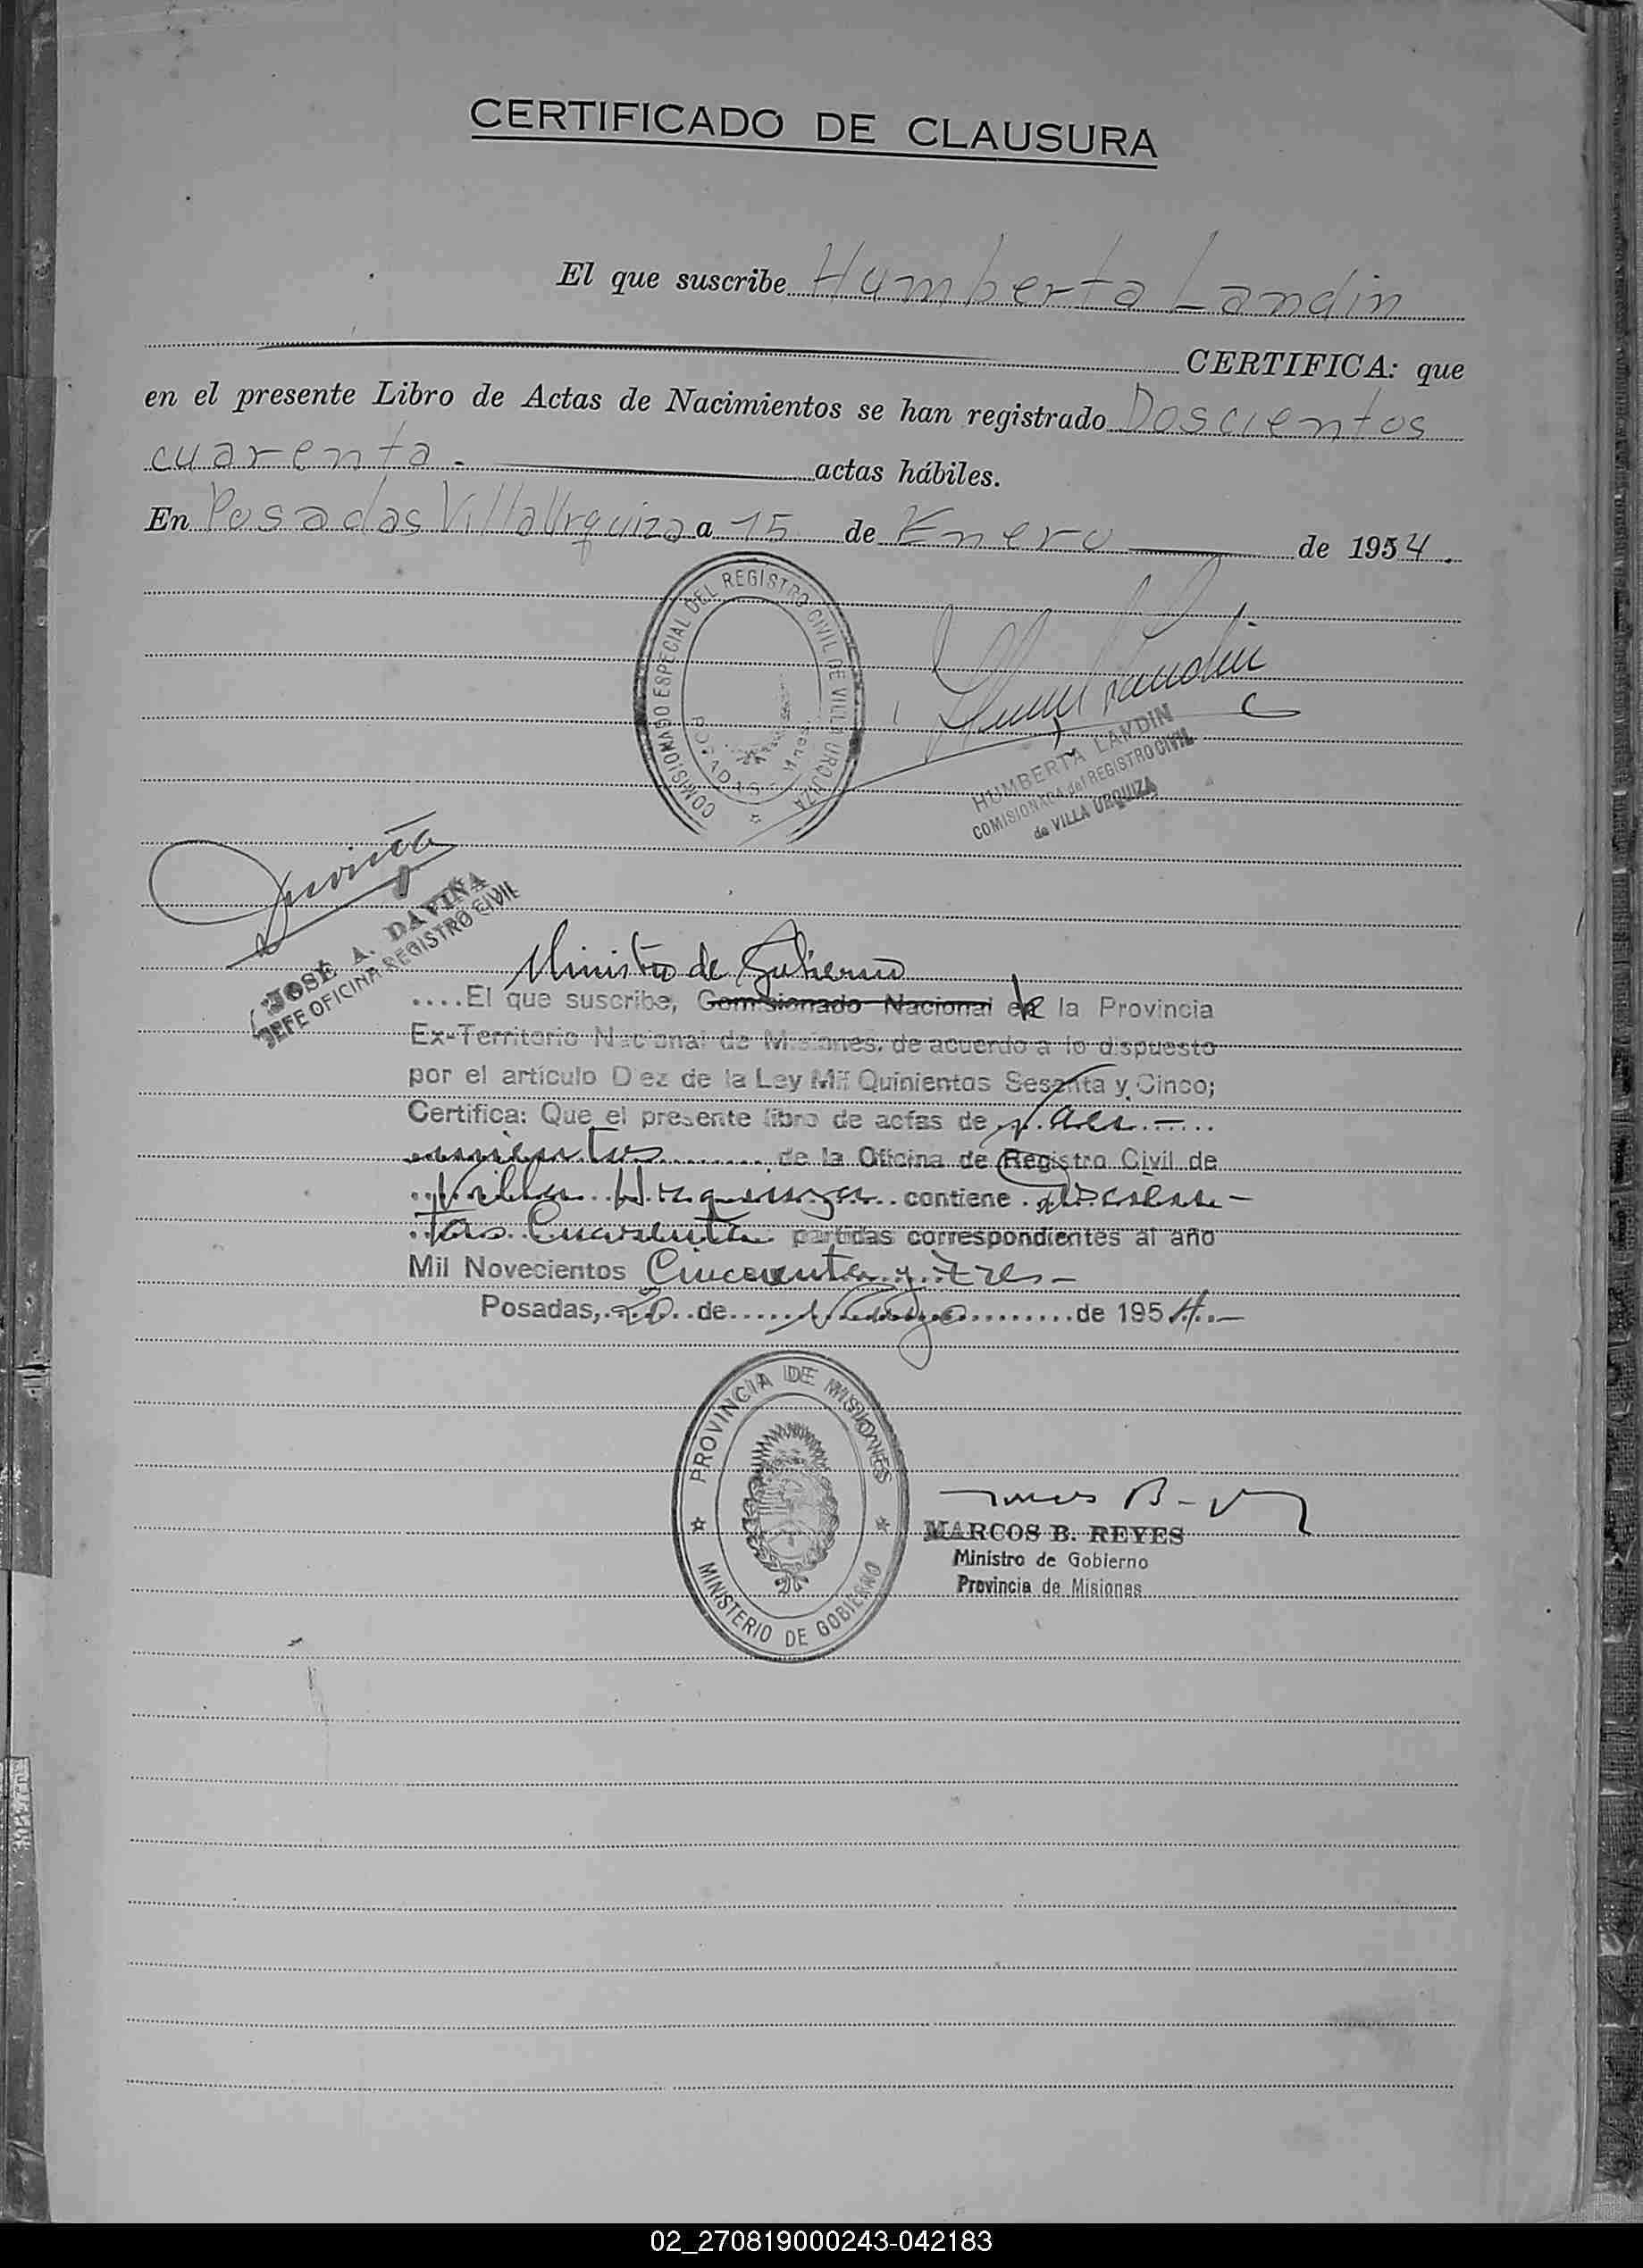 CERTIFICADO DE CLAUSURA
El que suscribe Humberta Landin
CERTIFICA: que
en el presente Libro de Actas de Nacimientos se han registrado Doscientos
cuarenta.- actas hábiles.
En Posadas Villa Urquiza a 15 de Enero de 1954.
COMISIONADO ESPECIAL DEL REGISTRO CIVIL DE VILLA URQUIZA
POSADAS Mnes.
HUMBERTA LANDIN
COMISIONADA del REGISTRO CIVIL
de VILLA URQUIZA
JOSÉ A. DAVIÑA
JEFE OFICINA REGISTRO CIVIL
Ministro de Gobierno
....El que suscribe, Comisionado Nacional de la Provincia
Ex-Territorio Nacional de Misiones, de acuerdo a lo dispuesto
por el artículo Diez de la Ley Mil Quinientos Sesenta y Cinco;
Certifica: Que el presente libro de actas de Naci-
mientos de la Oficina de Registro Civil de
Villa Urquiza contiene doscien-
tas Cuarenta partidas correspondientes al año
Mil Novecientos Cincuenta y tres-
Posadas, 20 de Mayo de 1954.-
PROVINCIA DE MISIONES
MINISTERIO DE GOBIERNO
Marcos B. Reyes
MARCOS B. REYES
Ministro de Gobierno
Provincia de Misiones
02_270819000243-042183